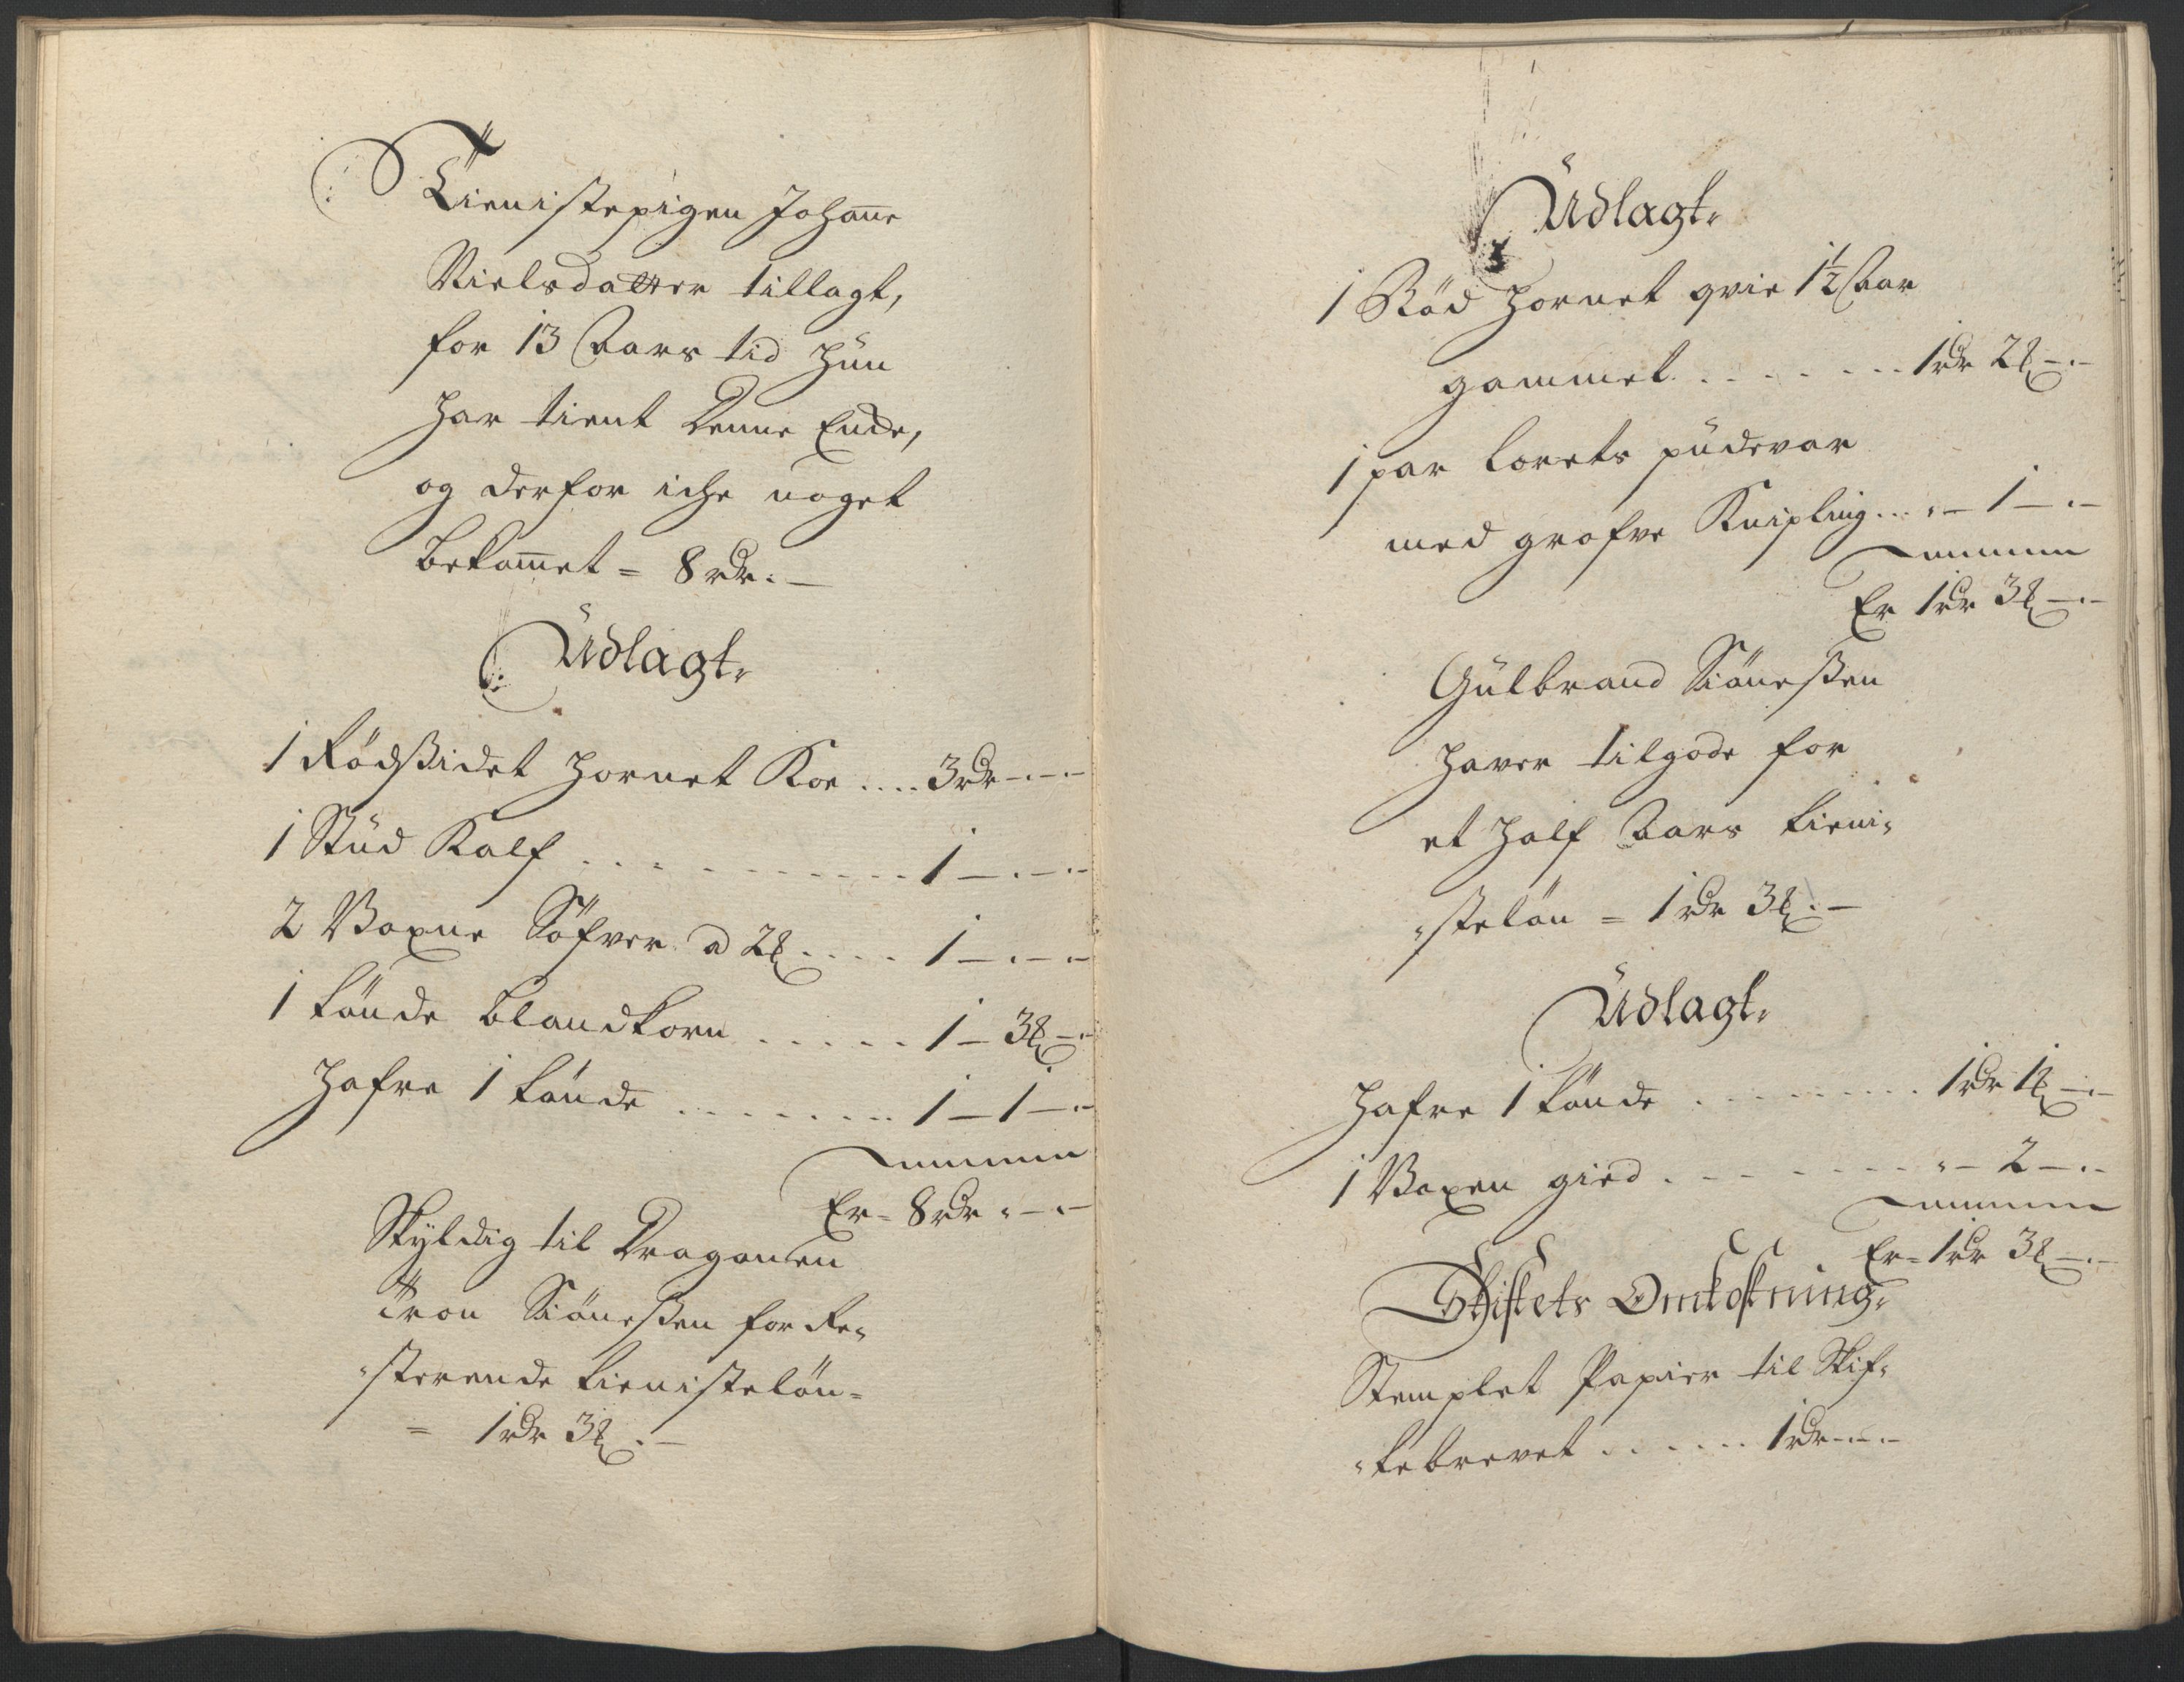 Tienistepigen Johan̄e
Nielsdatter tillagt,
for 13 Aars tid hun
har tient denne Ende,
og derfor iche noget
bekom̄et = 8 rdr:–
Udlagt,
1 Rödßidet hornet Koe .... 3 rdr –.–
1 Stud Kalf ............ 1 –.–
2 Voxne Söfver a 2 ß .... 1 –.–
1 tönde blandkorn ..... 1 – 3 ß –.
Hafre 1 tönde ........ 1 – 1 –.
Er = 8 rdr .–.–
Skyldig til Dragonen
Tron Siöneßen for Re,
,sterende tienistelön =
= 1 rdr 3 ß.–
Udlagt,
1 Röd hornet qvie 1½ Aar
gammel ........ 1 rdr 2 ß –.–
1 par lorets pudevar
med grofve Knipling ... „ – 1 –.–
Er 1 rdr 3 ß –.–
Gulbrand Siöneßen
haver tilgode for
et half Aars tieni,
,stelön = 1 rdr 3 ß.–
Udlagt,
Hafre 1 tönde ........ 1 rdr 1 ß –.–
1 Voxen gied ........ „ – 2 –.–
Er = 1 rdr 3 ß –.–
Skiftets Omkostning,
Stemplet Papier til Skif,
,tebrevet ...... 1 rdr –.–